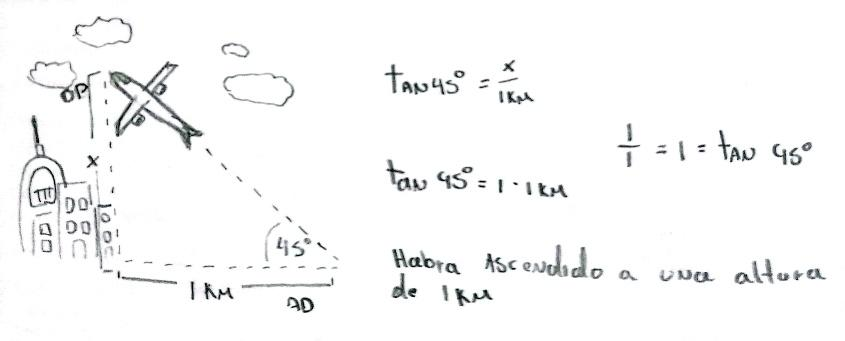 OP
x
45°
1 KM
AD
tAN 45° = x/1KM
1/1 = 1 = tAN 45°
tan 45° = 1 · 1 KM
Habra Ascendido a una altura
de 1 KM